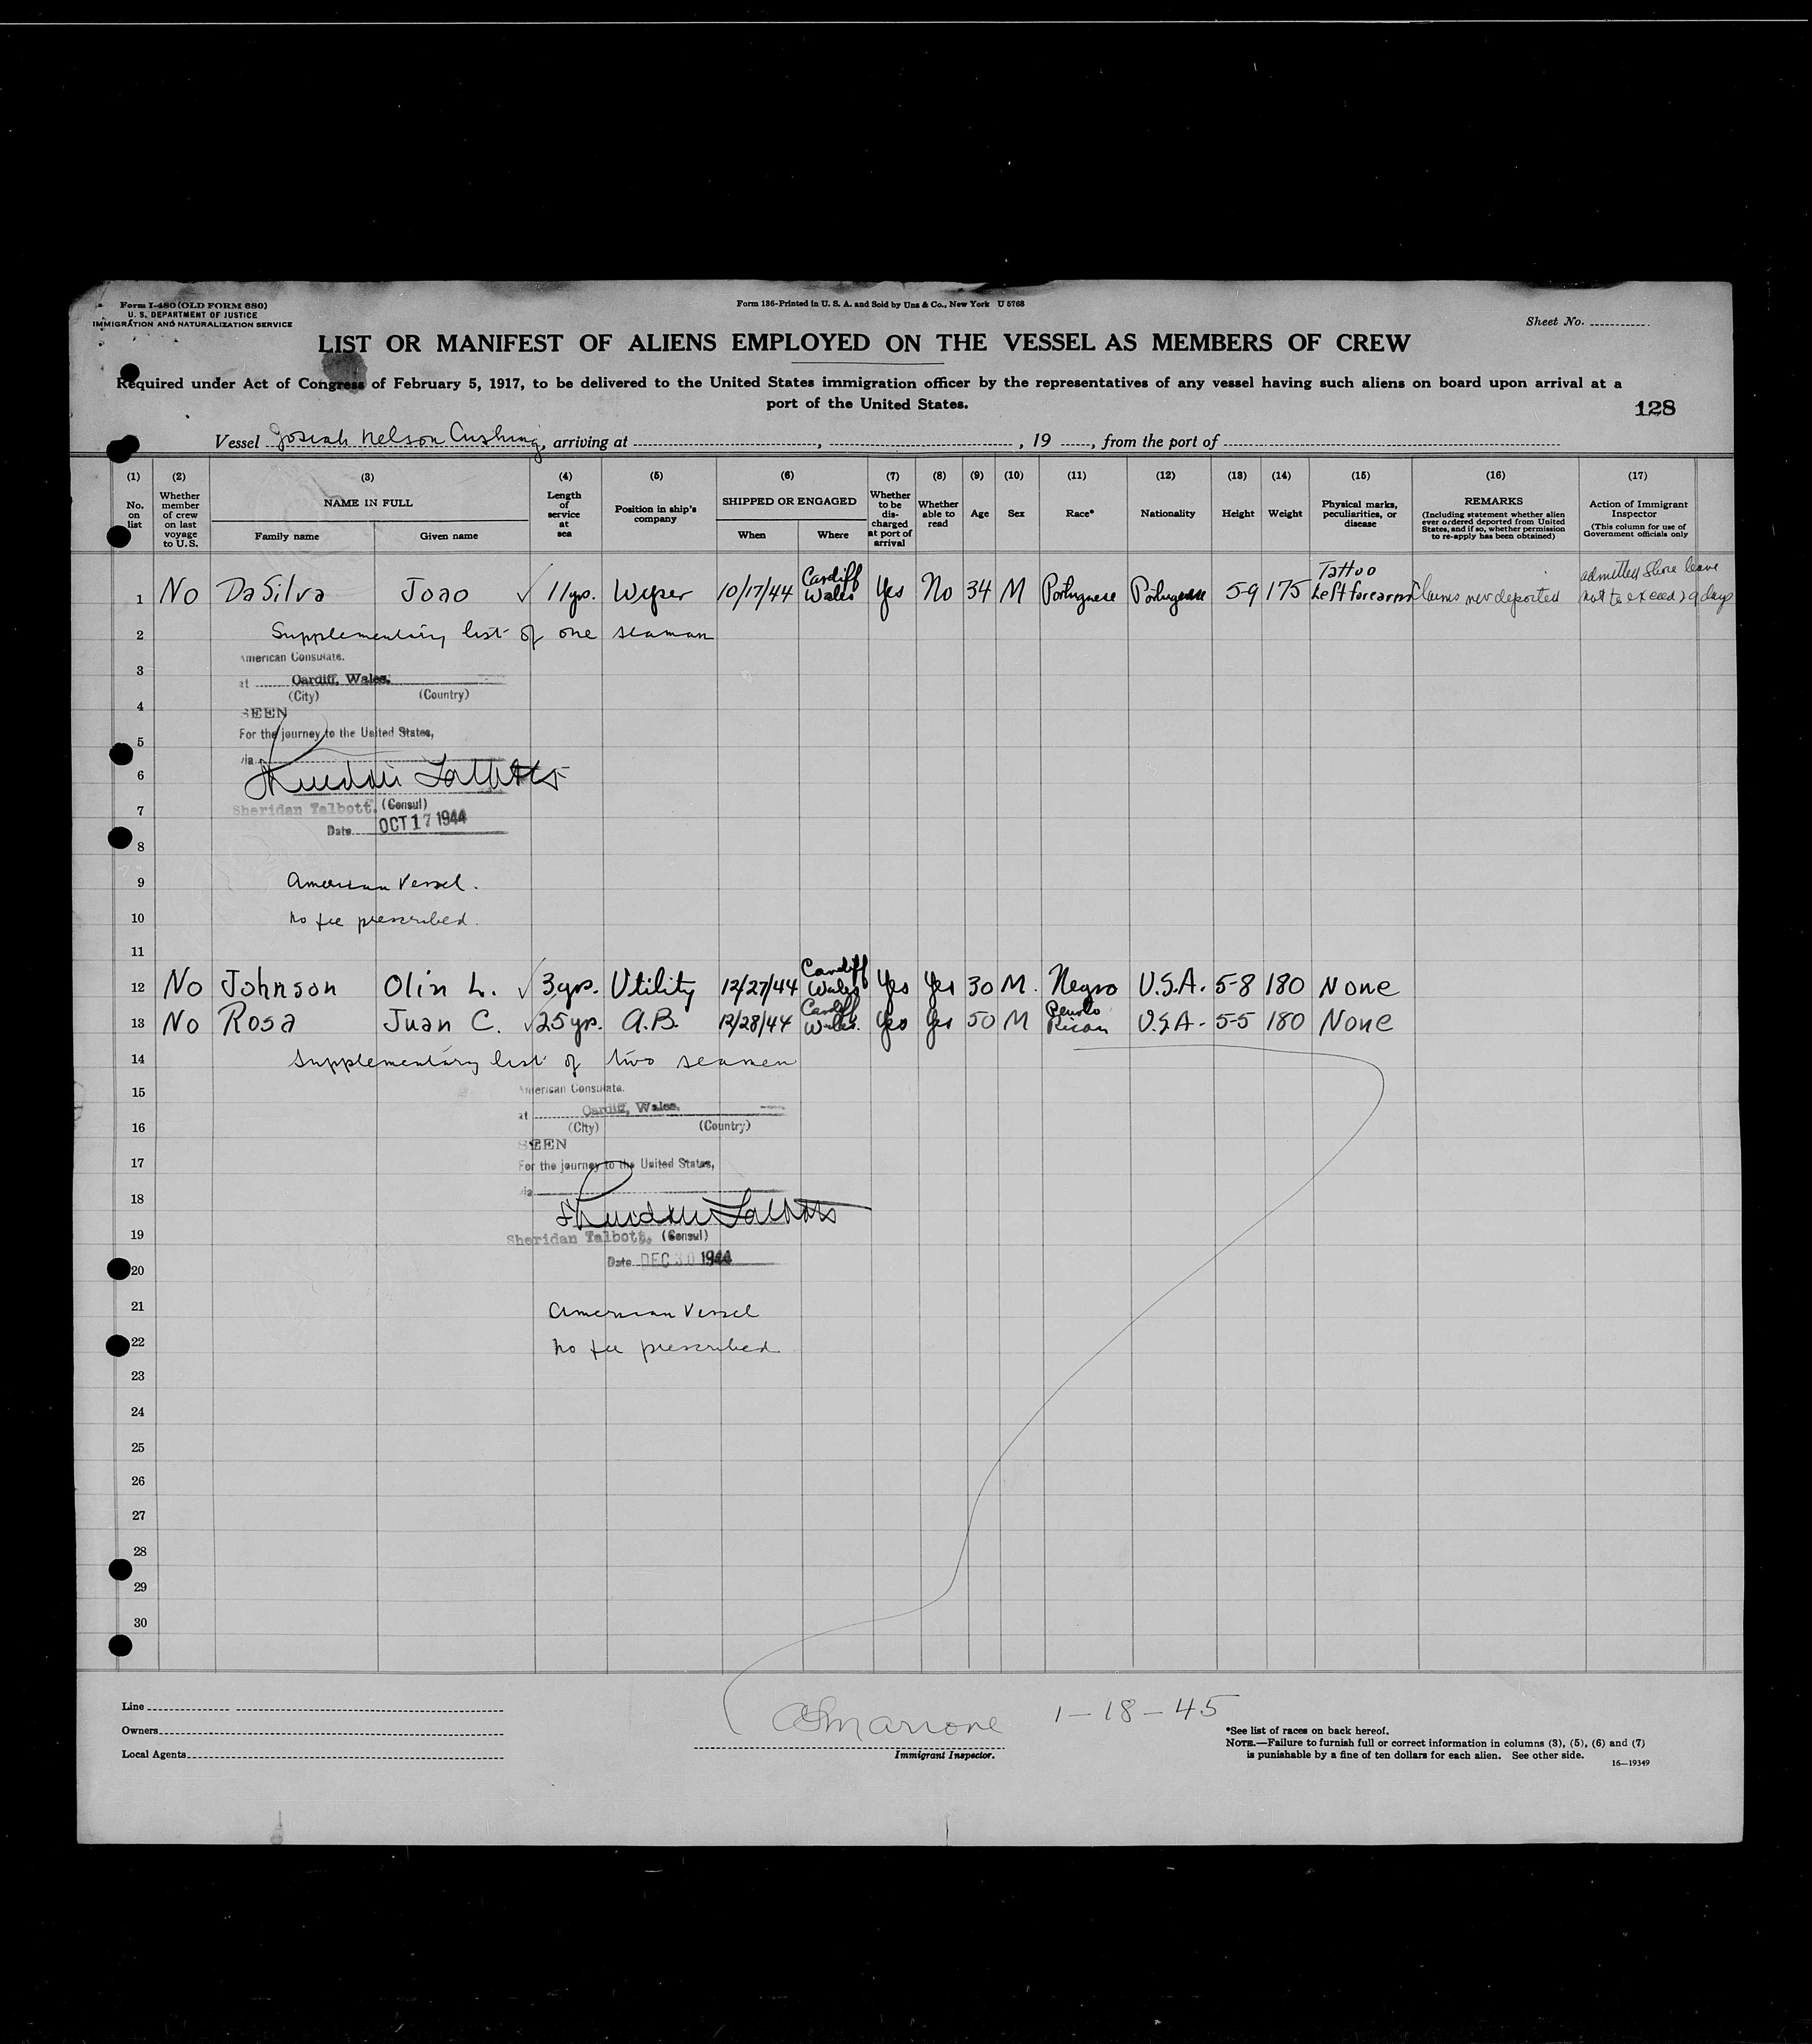 Form I-480 (OLD FORM 680)
U. S. DEPARTMENT OF JUSTICE
IMMIGRATION AND NATURALIZATION SERVICE
Form 186-Printed in U. S. A. and Sold by Unz & Co., New York U 5768
Sheet No.
LIST OR MANIFEST OF ALIENS EMPLOYED ON THE VESSEL AS MEMBERS OF CREW
Required under Act of Congress of February 5, 1917, to be delivered to the United States immigration officer by the representatives of any vessel having such aliens on board upon arrival at a
port of the United States.
128
Vessel Josiah Nelson Cushing, arriving at , , 19 , from the port of
(1) (2) (3) (4) (5) (6) (7) (8) (9) (10) (11) (12) (13) (14) (15) (16) (17)
No. on list
Whether member of crew on last voyage to U.S.
NAME IN FULL
Family name Given name
Length of service at sea
Position in ship's company
SHIPPED OR ENGAGED
When Where
Whether to be discharged at port of arrival
Whether able to read
Age
Sex
Race*
Nationality
Height
Weight
Physical marks, peculiarities, or disease
REMARKS
(Including statement whether alien ever ordered deported from United States, and if so, whether permission to re-apply has been obtained)
Action of Immigrant Inspector
(This column for use of Government officials only
1 No DaSilva Joao ✓ 11 yrs. Wiper 10/17/44 Cardiff Wales Yes No 34 M Portuguese Portuguese 5-9 175 Tattoo Left forearm Claims never deported admitted Shore leave not to exceed 29 days
2 Supplementary list of one seaman
American Consulate.
3
at Cardiff, Wales.
(City) (Country)
4
SEEN
For the journey to the United States,
5
via
6
7
Sheridan Talbott, (Consul)
Date OCT 17 1944
8
9 American Vessel.
10 No fee prescribed.
11
12 No Johnson Olin L. ✓ 3 yrs. Utility 12/27/44 Cardiff Wales Yes Yes 30 M. Negro U.S.A. 5-8 180 None
13 No Rosa Juan C. ✓ 25 yr. A.B. 12/28/44 Cardiff Wales. Yes Yes 50 M Puerto Rican U.S.A. 5-5 180 None
14 Supplementary list of two seamen
American Consulate.
15
at Cardiff, Wales.
16 (City) (Country)
SEEN
17 For the journey to the United States,
via
18
19 Sheridan Talbott, (Consul)
Date DEC 30 1944
20
21 American Vessel
22 No fee prescribed.
23
24
25
26
27
28
29
30
Line
Owners
Local Agents
1-18-45
Immigrant Inspector.
*See list of races on back hereof.
NOTE.—Failure to furnish full or correct information in columns (3), (5), (6) and (7)
is punishable by a fine of ten dollars for each alien. See other side.
16—19349